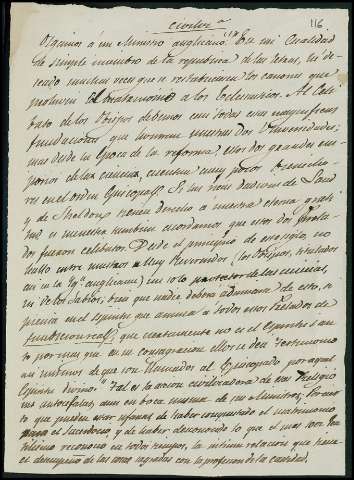 116
Oigamos á un Ministro anglicano. "En mi Cualidad
de simple miembro de la republica de las letras, he de-
seado muchas veces que se restableciesen los canones que
prohiven el matrimonio a los Eclesiasticos. Al Celi-
bato de los Obispos debemos casi todas esas magnificas
fundaciones que honran nuestras dos Universidades;
mas desde la época de la reforma, estos dos grandes em-
porios de las ciencias, cuentan muy pocos
en el orden Episcopal. Si las de Laud
y de Sheldon tienen derecho á nuestra eterna grati-
tud, á nuestra tambien recordamos que estos dos Prela-
dos fueron celibatos. Desde el principio de este siglo, no
hallo entre nuestros Muy Reverendos (los Obispos, titulados
asi en la Yg.ª anglicana) un solo protector de las ciencias,
ni de los sabios; creo que nadie deberá admirarse de esto, si
piensa en el espiritu que anima a todos estos Prelados de
que ciertamente no es el Espiritu San-
to por mas que en su consagracion ellos se den testimonio
a si mismos de que son llamados al Episcopado por aquel
Espiritu divino." Tal es la accion civilizadora de esa Religio
sus autocefalas, aun en boca misma de sus Ministros; por cier-
to que pueden estar ufanas de haber conquistado el matrimonio
para el sacerdocio, y de haber desconocido lo que el mas
reconoce en todos tiempos, la intima relacion que tiene
el desempeño de las cosas sagradas con la profesion de la castidad.